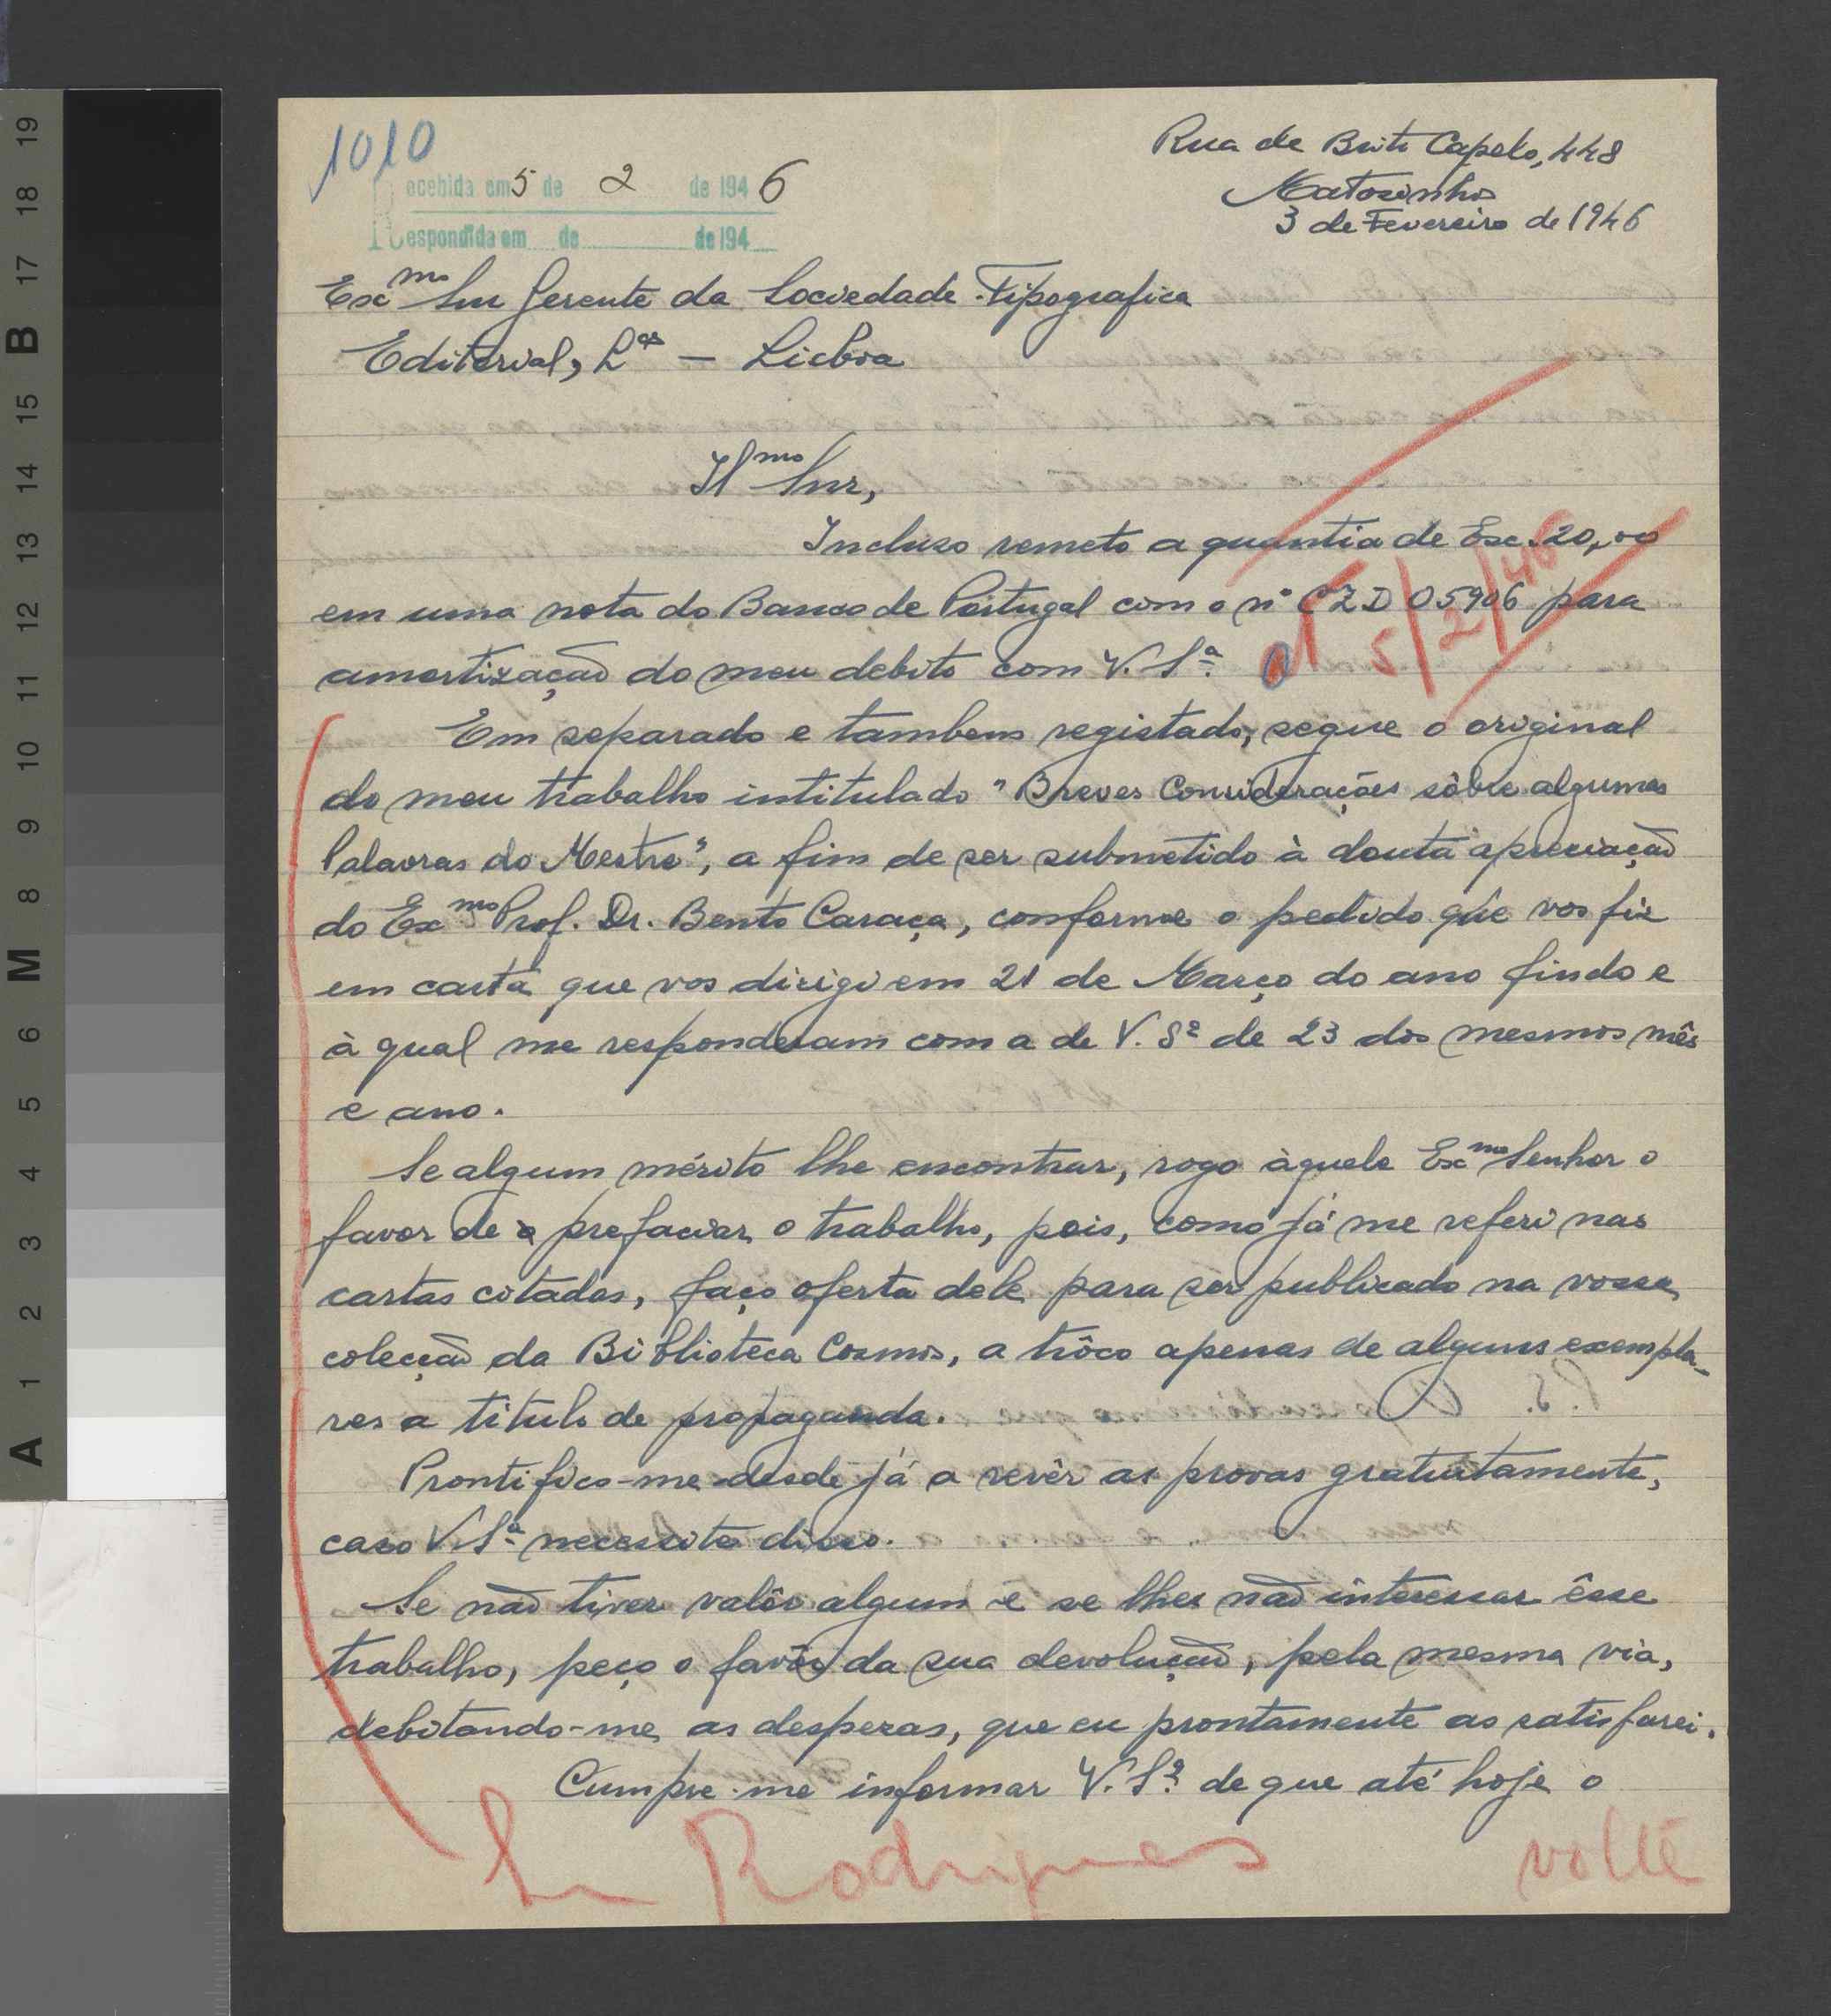 1010
Recebida em 5 de 2 de 1946
Respondida em de de 194
Rua de Brito Capelo, 448
Matosinhos
3 de Fevereiro de 1946
Exmo Snr Gerente da Sociedade Tipografica
Editorial, Lda — Lisboa
Ilmo Snr,
Incluso remeto a quantia de Esc. 20,00
em uma nota do Banco de Portugal com o nº CZD 05906 para
amortização do meu debito com V. Sª.
5/2/46
Em separado e tambem registado, segue o original
do meu trabalho intitulado "Breves Considerações sôbre algumas
Palavras do Mestre", a fim de ser submetido à douta apreciação
do Exmo Prof. Dr. Bento Caraça, conforme o pedido que vos fiz
em carta que vos dirigi em 21 de Março do ano findo e
à qual me responderam com a de V. Sª de 23 dos mesmos mês
e ano.
Se algum mérito lhe encontrar, rogo àquele Exmo Senhor o
favor de prefaciar o trabalho, pois, como já me referi nas
cartas citadas, faço oferta dele para ser publicado na vossa
colecção da Biblioteca Cosmos, a trôco apenas de alguns exempla-
res a titulo de propaganda.
Prontifico-me desde já a revêr as provas gratuitamente,
caso V. Sª necessite disso.
Se não tiver valôr algum e se lhes não interessar êsse
trabalho, peço o favôr da sua devolução, pela mesma via,
debitando-me as despezas, que eu prontamente as satisfarei.
Cumpre-me informar V. Sª. de que até hoje o
Sr Rodrigues
volte